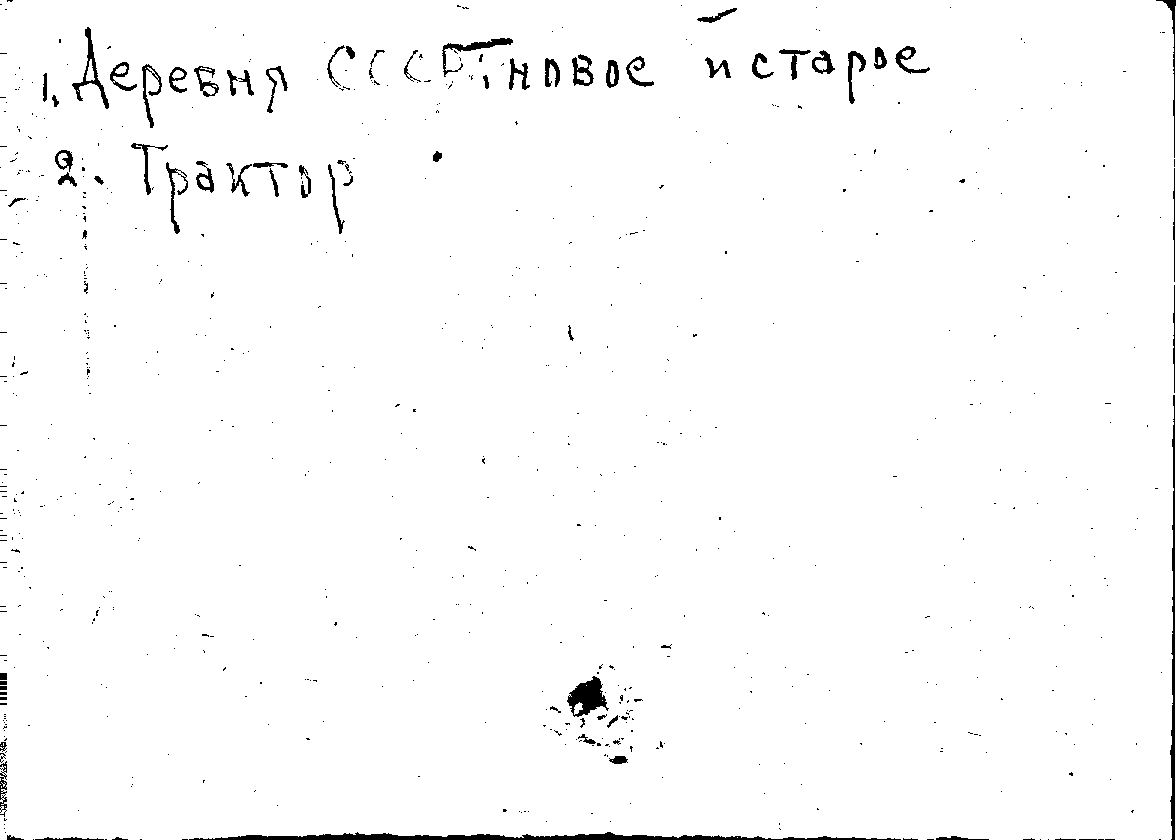 1. Деревня СССР: новое и старое
2. Трактор